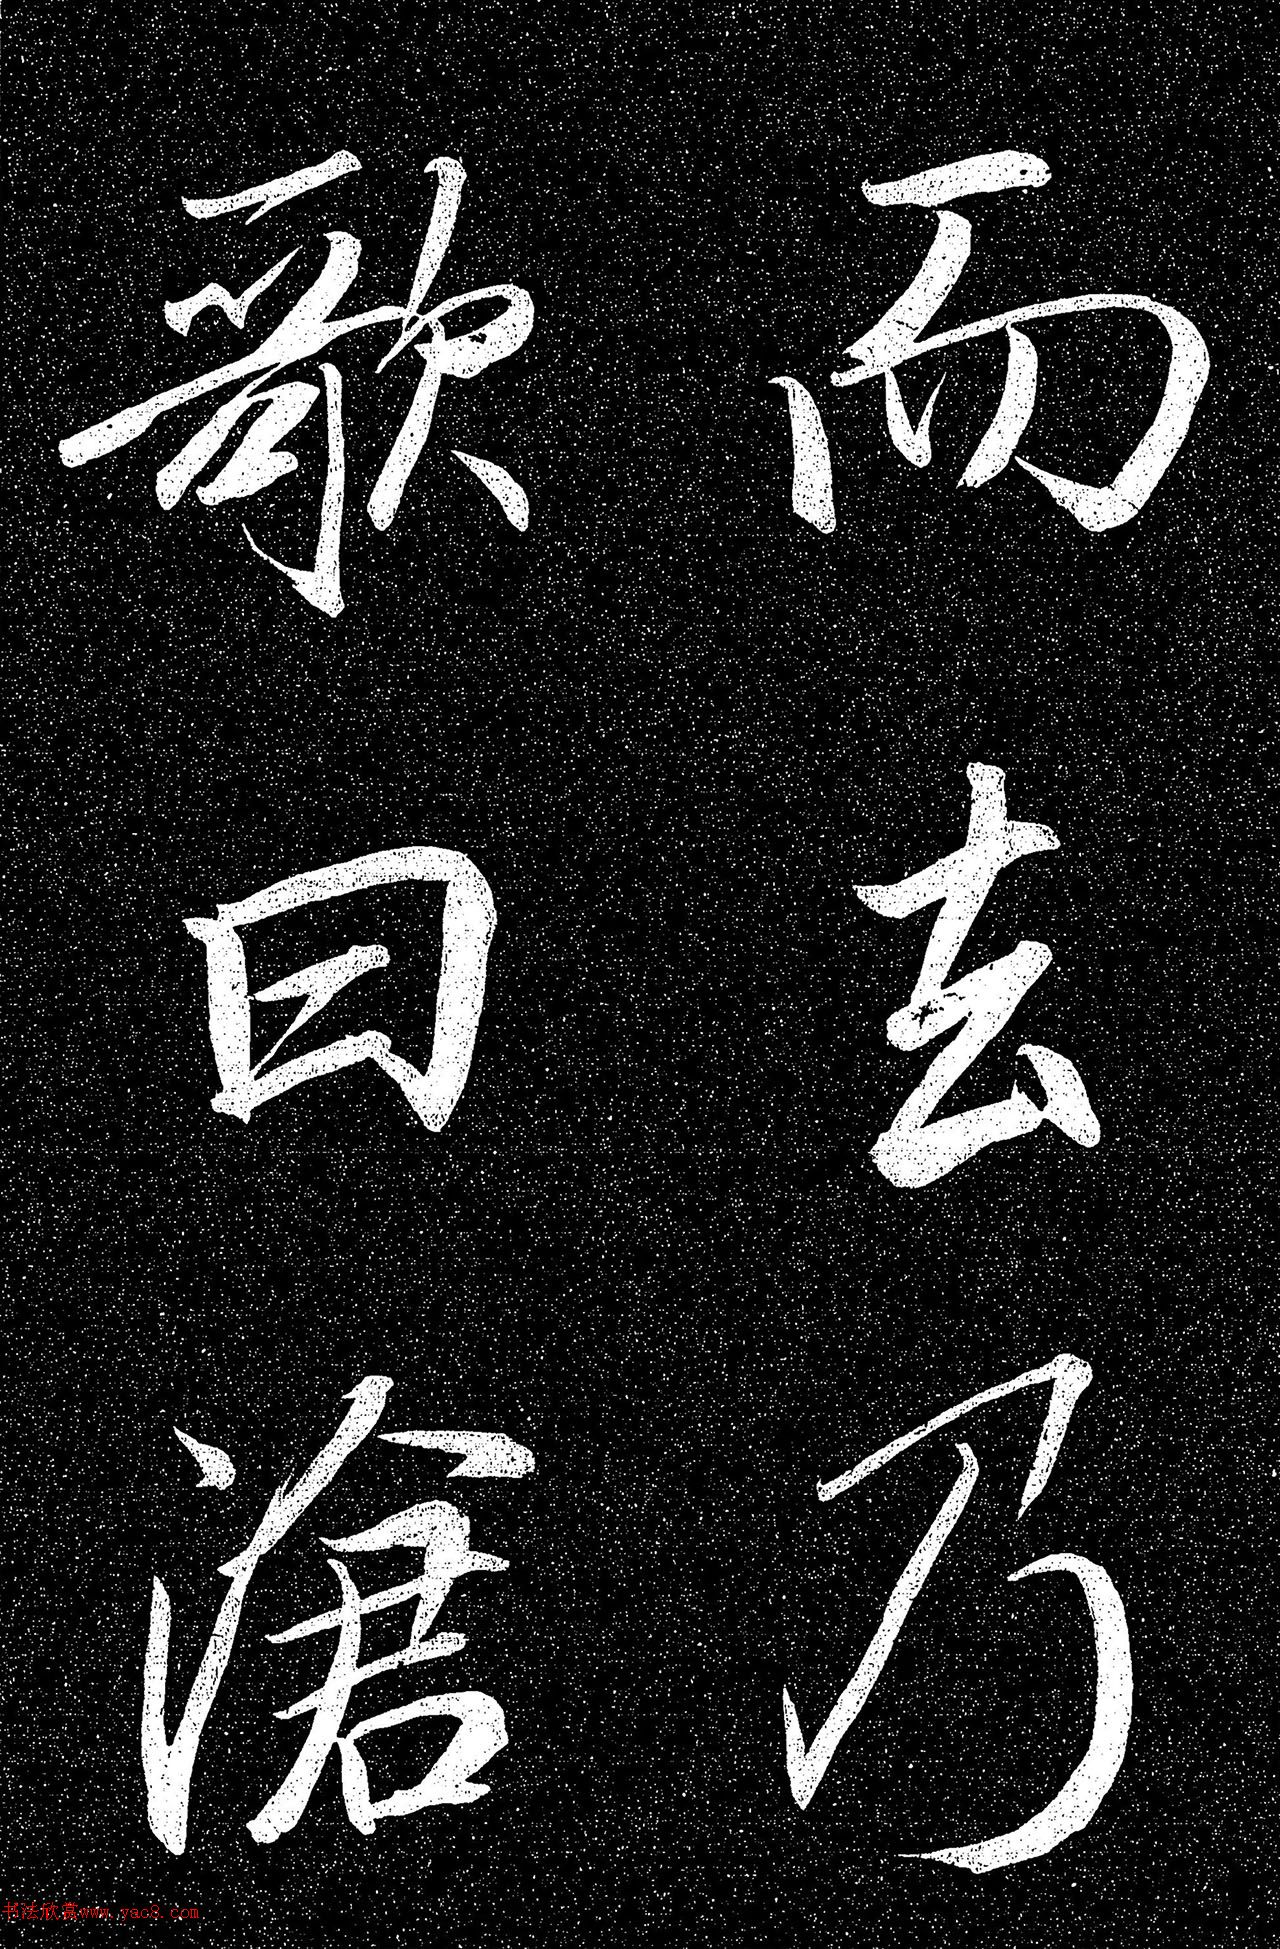 而去乃
歌曰滄
书法欣赏www.yac8.com